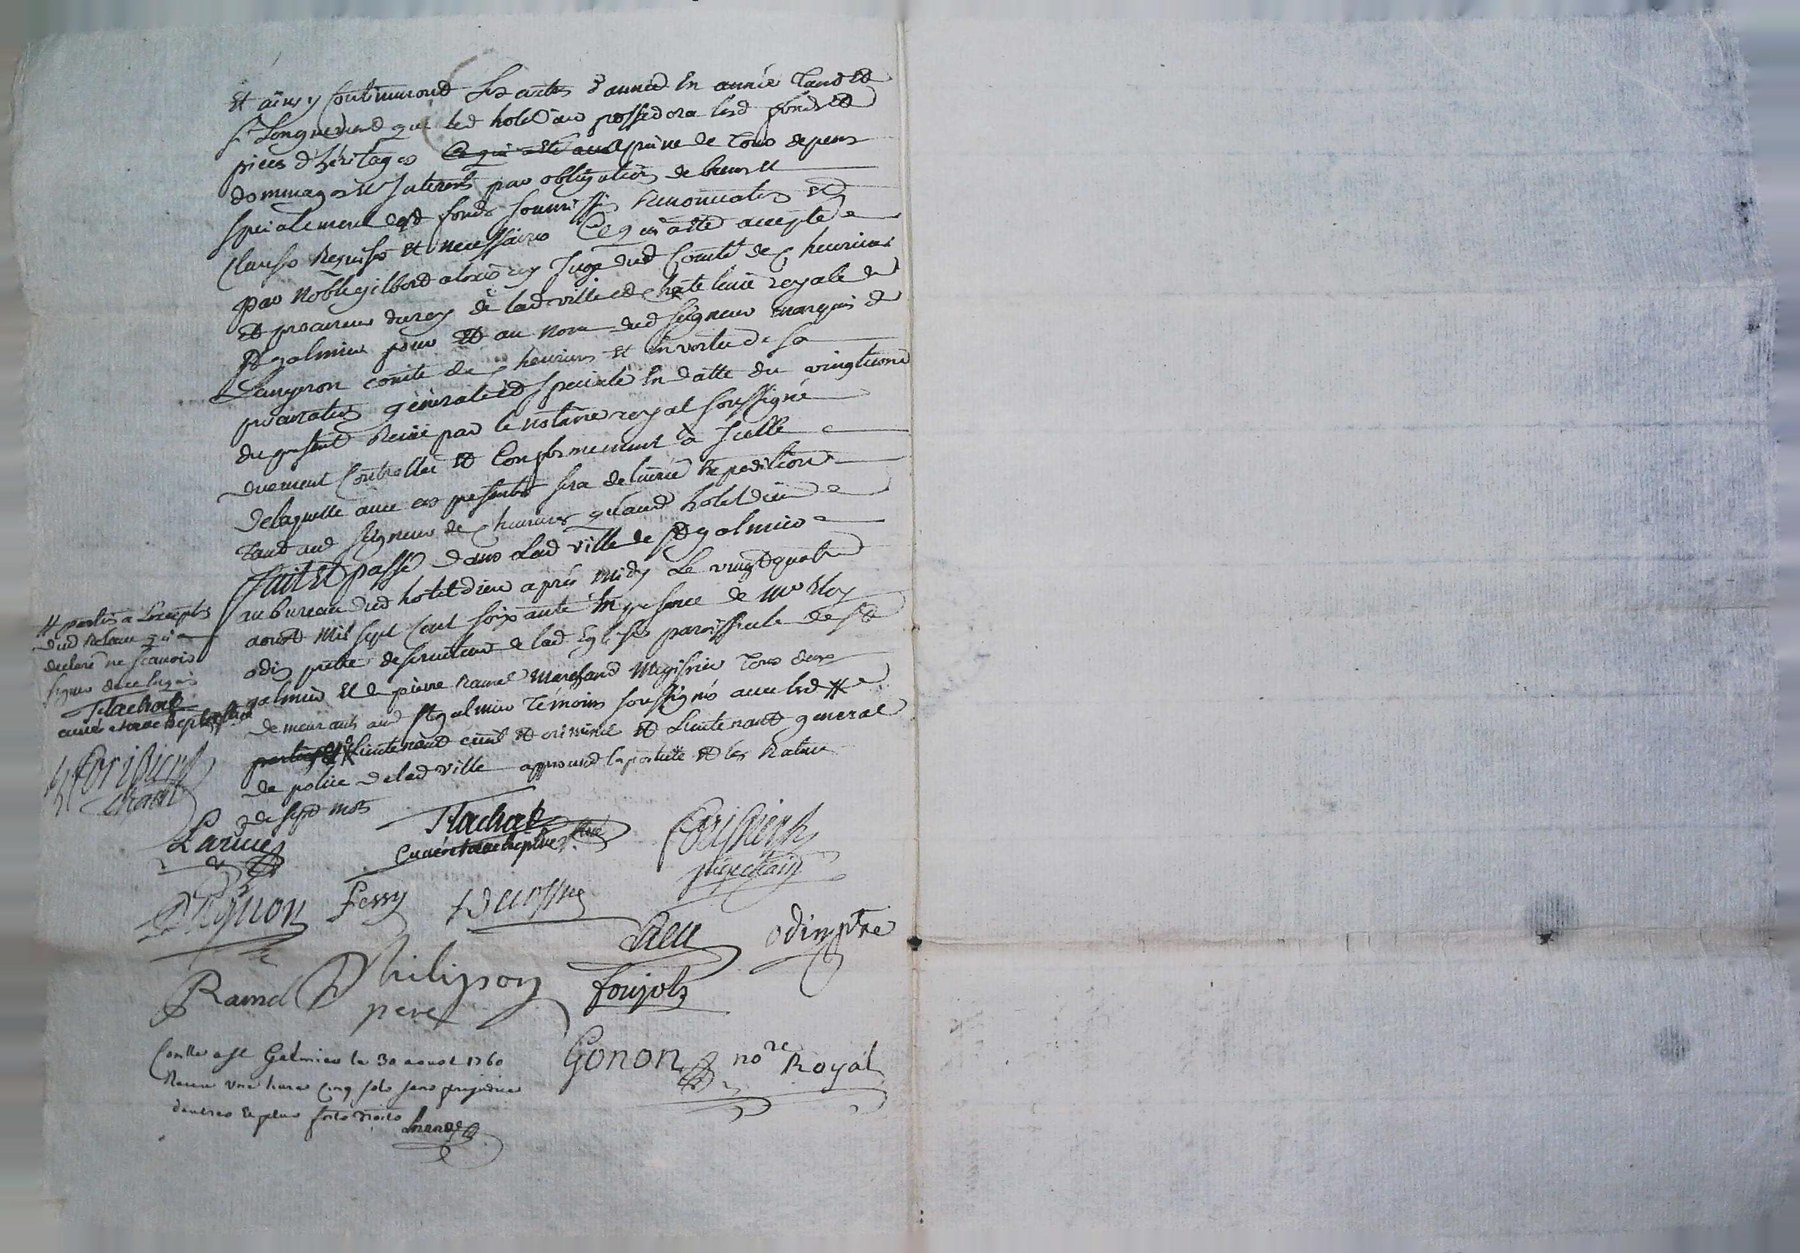 et ainsy continuront lesd antes d'année en année tand et
sy longuement que led hotel dieu possedera lesd fonds et
pieces d'héritages a peine de tous depens
dommages et interests par obligation de biens et
specialement desd fonds soumissions renonciations et
clauses requises et necessaires ce qui a été accepté
par noble gilbert alexis rey juge dud Comté de Cheurieres
et procureur du roy de lad ville et chatelenie royale de
St galmier pour et au nom dud seigneur marquis de
Langeron comte de Cheurieres et en vertu de sa
procuration généralle et specialle en datte du vingtieme
du present Reçüe par le notaire royal soussigné
duement Controllée et conformement à icelle
de laquelle avec ces presentes sera delivrée expedition
tant aud seigneur de Cheurieres qu'aud hotel dieu
fait et passé dans lad ville de St galmier
au bureau dud hotel dieu après midy le vingt quatre
aoust mil sept cent soixante en presence de Mre
odin pretre desserviteur de lad Eglise paroissiale de St
galmier et de pierre Ramel marchand Megissier tous deux
demeurants aud St galmier témoins soussignés avec lesd #
lieutenant civil et criminel et lieutenant general
de police de lad ville approuvé la postille et les Rature
de sept mots
# parties a l'exception
dud
declaré ne scavoir
signer de ce enquis
Flachat
curé
Larue
Flachat
curé
Pignon Ferry
Rey odin ptre
Ramel Philipon
pere
foujols
Gonon nore Royal
Conllé a St Galmier le 30 aoust 1760
Receu une livre cinq sols sans prejudice
d'autres et plus forts droits